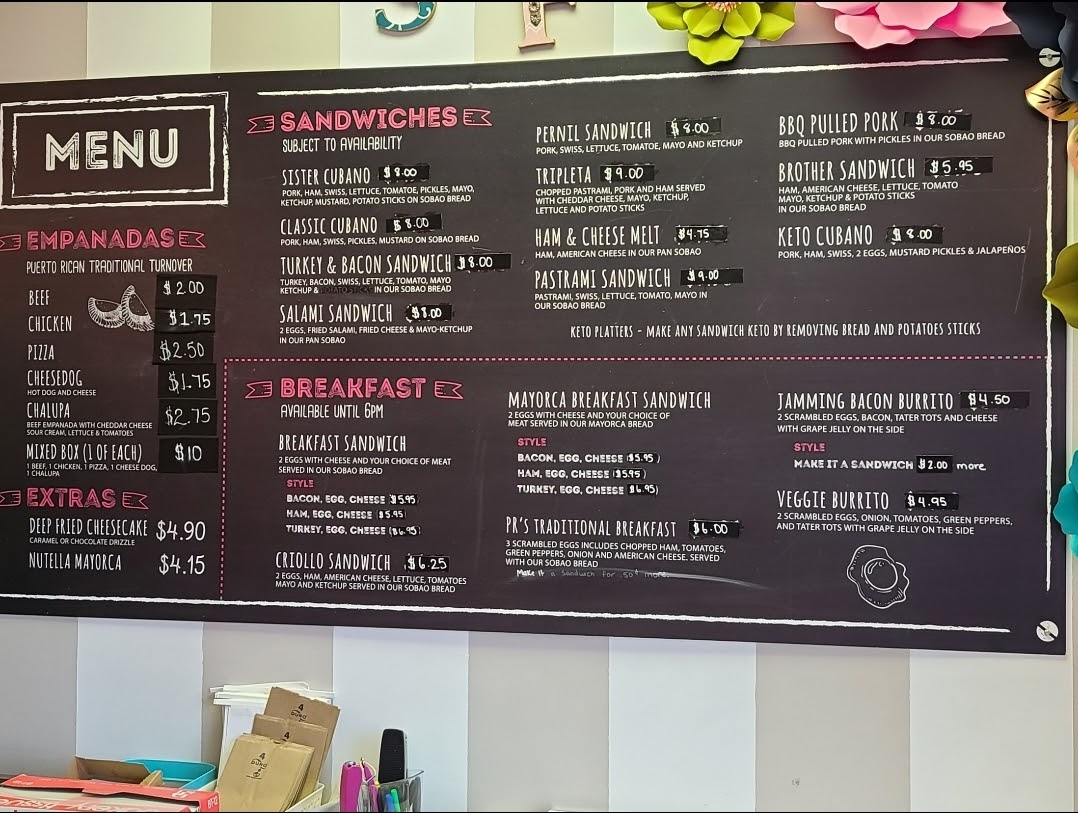 S F
MENU
EMPANADAS
PUERTO RICAN TRADITIONAL TURNOVER
BEEF $2.00
CHICKEN $1.75
PIZZA $2.50
CHEESEDOG $1.75
HOT DOG AND CHEESE
CHALUPA $2.75
BEEF EMPANADA WITH CHEDDAR CHEESE
SOUR CREAM, LETTUCE & TOMATOES
MIXED BOX (1 OF EACH) $10
1 BEEF, 1 CHICKEN, 1 PIZZA, 1 CHEESE DOG,
1 CHALUPA
EXTRAS
DEEP FRIED CHEESECAKE $4.90
CARAMEL OR CHOCOLATE DRIZZLE
NUTELLA MAYORCA $4.15
SANDWICHES
SUBJECT TO AVAILABILITY
SISTER CUBANO $8.00
PORK, HAM, SWISS, LETTUCE, TOMATOE, PICKLES, MAYO,
KETCHUP, MUSTARD, POTATO STICKS ON SOBAO BREAD
CLASSIC CUBANO $8.00
PORK, HAM, SWISS, PICKLES, MUSTARD ON SOBAO BREAD
TURKEY & BACON SANDWICH $8.00
TURKEY, BACON, SWISS, LETTUCE, TOMATO, MAYO
KETCHUP & IN OUR SOBAO BREAD
SALAMI SANDWICH $8.00
2 EGGS, FRIED SALAMI, FRIED CHEESE & MAYO-KETCHUP
IN OUR PAN SOBAO
PERNIL SANDWICH $8.00
PORK, SWISS, LETTUCE, TOMATOE, MAYO AND KETCHUP
TRIPLETA $9.00
CHOPPED PASTRAMI, PORK AND HAM SERVED
WITH CHEDDAR CHEESE, MAYO, KETCHUP,
LETTUCE AND POTATO STICKS
HAM & CHEESE MELT $4.75
HAM, AMERICAN CHEESE IN OUR PAN SOBAO
PASTRAMI SANDWICH $9.00
PASTRAMI, SWISS, LETTUCE, TOMATO, MAYO IN
OUR SOBAO BREAD
BBQ PULLED PORK $8.00
BBQ PULLED PORK WITH PICKLES IN OUR SOBAO BREAD
BROTHER SANDWICH $5.95
HAM, AMERICAN CHEESE, LETTUCE, TOMATO
MAYO, KETCHUP & POTATO STICKS
IN OUR SOBAO BREAD
KETO CUBANO $8.00
PORK, HAM, SWISS, 2 EGGS, MUSTARD PICKLES & JALAPEÑOS
KETO PLATTERS - MAKE ANY SANDWICH KETO BY REMOVING BREAD AND POTATOES STICKS
BREAKFAST
AVAILABLE UNTIL 6PM
BREAKFAST SANDWICH
2 EGGS WITH CHEESE AND YOUR CHOICE OF MEAT
SERVED IN OUR SOBAO BREAD
STYLE
BACON, EGG, CHEESE ($5.95)
HAM, EGG, CHEESE ($5.95)
TURKEY, EGG, CHEESE ($6.95)
CRIOLLO SANDWICH $6.25
2 EGGS, HAM, AMERICAN CHEESE, LETTUCE, TOMATOES
MAYO AND KETCHUP SERVED IN OUR SOBAO BREAD
MAYORCA BREAKFAST SANDWICH
2 EGGS WITH CHEESE AND YOUR CHOICE OF
MEAT SERVED IN OUR MAYORCA BREAD
STYLE
BACON, EGG, CHEESE ($5.95)
HAM, EGG, CHEESE ($5.95)
TURKEY, EGG, CHEESE ($6.95)
PR'S TRADITIONAL BREAKFAST $6.00
3 SCRAMBLED EGGS INCLUDES CHOPPED HAM, TOMATOES,
GREEN PEPPERS, ONION AND AMERICAN CHEESE. SERVED
WITH OUR SOBAO BREAD
Make it a Sandwich for .50¢ more.
JAMMING BACON BURRITO $4.50
2 SCRAMBLED EGGS, BACON, TATER TOTS AND CHEESE
WITH GRAPE JELLY ON THE SIDE
STYLE
MAKE IT A SANDWICH $2.00 more
VEGGIE BURRITO $4.95
2 SCRAMBLED EGGS, ONION, TOMATOES, GREEN PEPPERS,
AND TATER TOTS WITH GRAPE JELLY ON THE SIDE
4
4
4